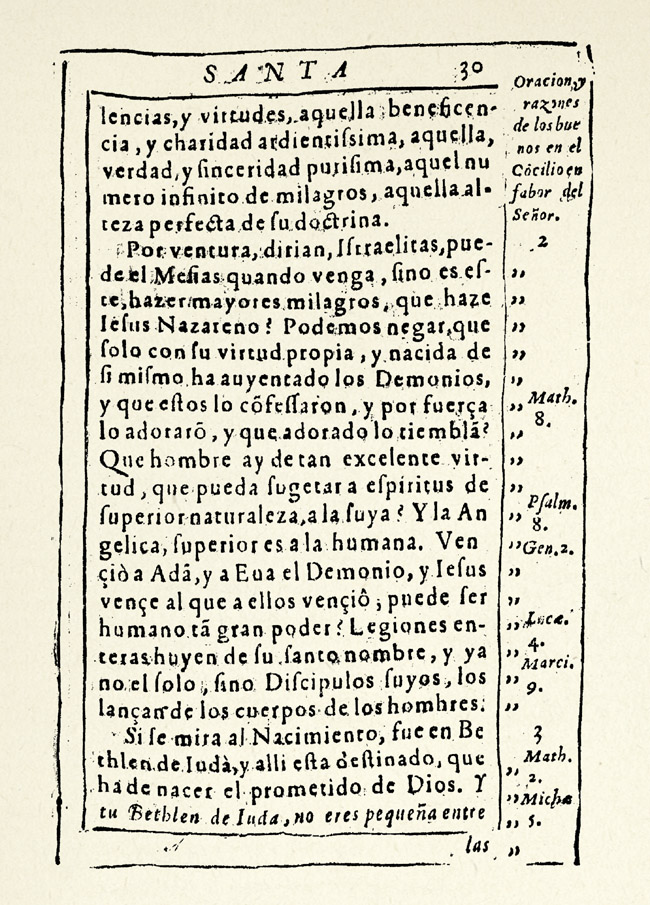 SANTA 30
lencias, y virtudes, aquella beneficen-
cia, y charidad ardientissima, aquella,
verdad, y sinceridad purisima, aquel nu
mero infinito de milagros, aquella al-
teza perfecta de su doctrina.
Por ventura, dirian, Istraelitas, pue-
de el Mesias quando venga, sino es es-
te, hazer mayores milagros, que haze
Iesus Nazareno? Podemos negar, que
solo con su virtud propia, y nacida de
si mismo ha auyentado los Demonios,
y que estos lo cõfessaron, y por fuerça
lo adorarõ, y que adorado lo tiemblã?
Que hombre ay de tan excelente vir-
tud, que pueda sugetar a espiritus de
superior naturaleza, a la suya? Y la An
gelica, superior es a la humana. Ven
çiò a Adã, y a Eua el Demonio, y Iesus
vençe al que a ellos vençiô; puede ser
humano tã gran poder? Legiones en-
teras huyen de su santo nombre, y ya
no el solo, sino Discipulos suyos, los
lançan de los cuerpos de los hombres.
Si se mira al Nacimiento, fue en Be
thlen de Iudà, y alli esta destinado, que
ha de nacer el prometido de Dios. Y
tu Bethlen de Iuda, no eres pequeña entre
las
Oracion, y
razones
de los bue
nos en el
Cõcilio en
fabor del
Señor.
2
„
„
„
„
„
„ Math.
8.
„
„
„
„ Psalm.
8.
„ Gen. 2.
„
„
„ Lucæ.
4.
„
Marci.
„ 9.
„
3
Math.
„ 2.
„ Michæ
„ 5.
„